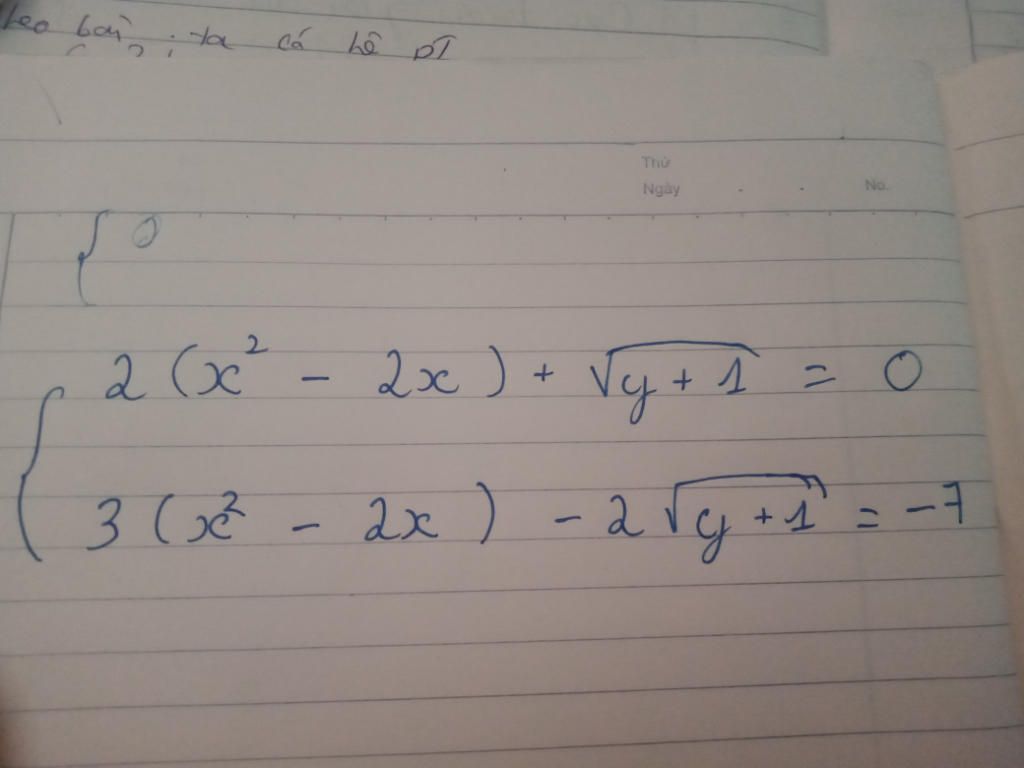 leo bài : ta có hệ pT
Thứ
Ngày . . No.
{ 0
{ 2 (x² - 2x) + √(y + 1) = 0
3 (x² - 2x) - 2√(y + 1) = -7